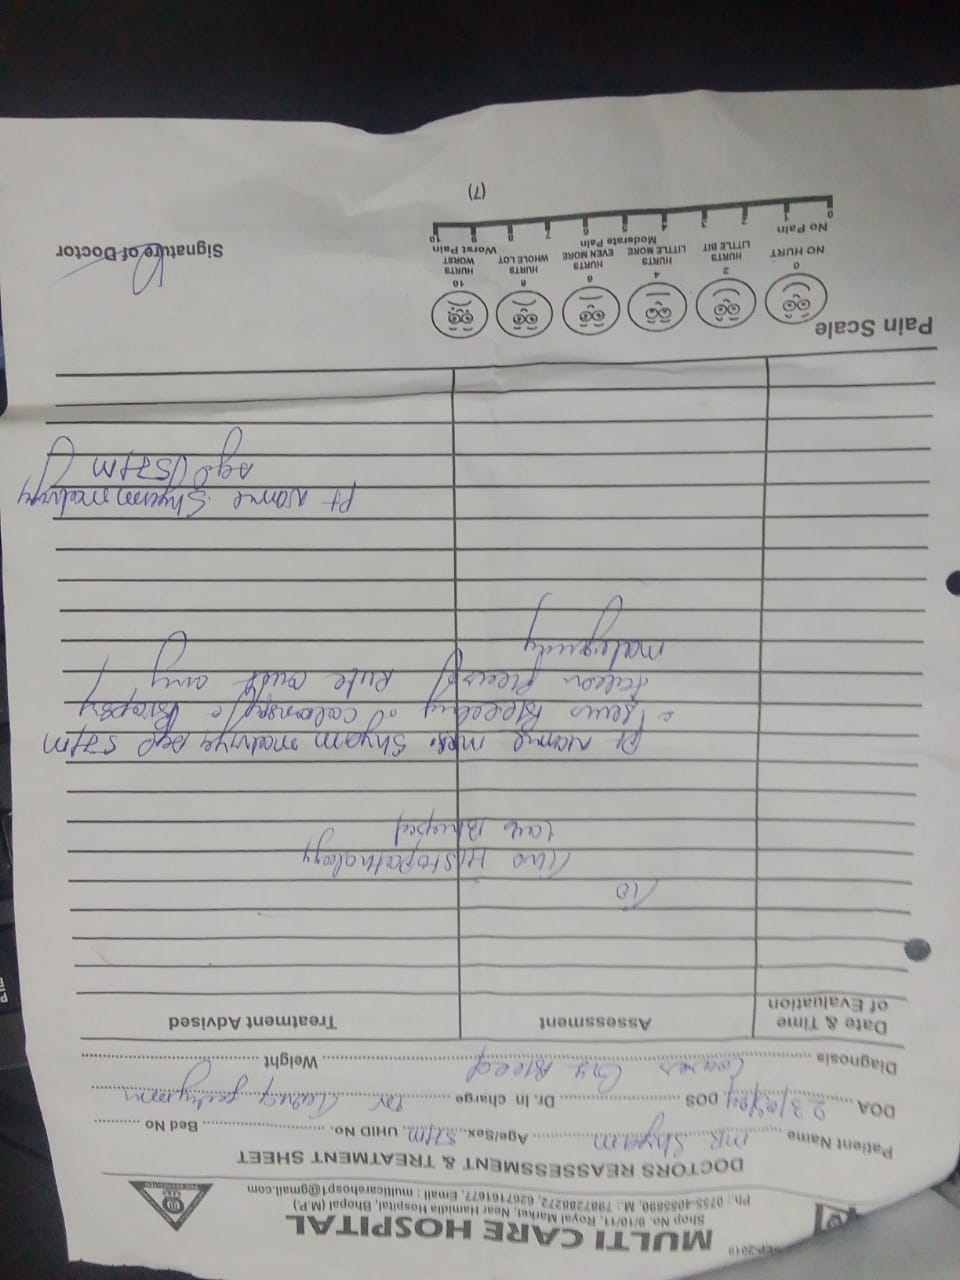 SEP-2019
MULTI CARE HOSPITAL
Shop No. 9/10/11, Royal Market, Near Hamidia Hospital, Bhopal (M.P.)
Ph.: 0755-4055890, M.: 7987288272, 6267161677, Email : multicarehosp1@gmail.com
DOCTORS REASSESSMENT & TREATMENT SHEET
Patient Name MR. Shyam Age/Sex 57/M UHID No. Bed No
DOA DOS Dr. In charge Dr
Diagnosis Lower GI Bleed Weight
Date & Time of Evaluation Assessment Treatment Advised
To
Histopathology
Lab Bhopal
Pt Name Shyam malviya age 57/M
Bleeding Biopsy
taken Rule out any
malignancy
Pt Name Shyam malviya
age 57/M
Pain Scale
0 2 4 6 8 10
NO HURT HURTS LITTLE BIT HURTS LITTLE MORE HURTS EVEN MORE HURTS WHOLE LOT HURTS WORST
No Pain Moderate Pain Worst Pain
0 1 2 3 4 5 6 7 8 9 10
Signature of Doctor
(7)